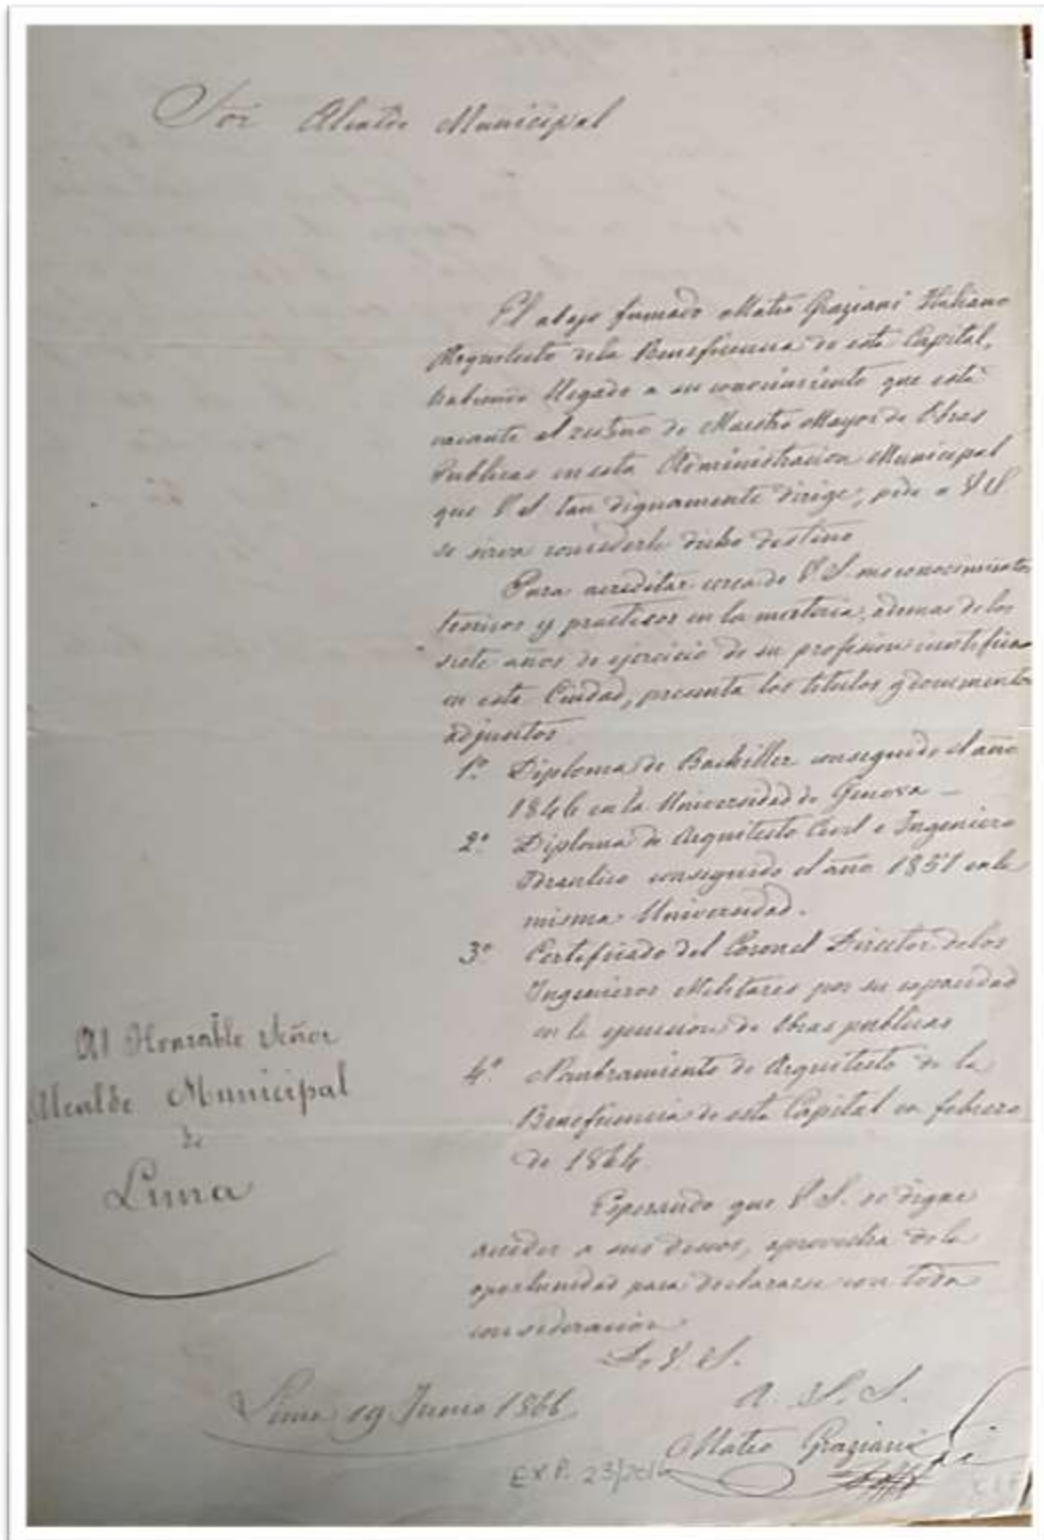 Sor Alcalde Municipal
El abajo firmado Mateo Graziani Italiano
Arquitecto dela Beneficencia de esta Capital,
habiendo llegado a su conocimiento que está
vacante el destino de Maestro Mayor de Obras
Publicas en esta Administracion Municipal
que V S tan dignamente dirige, pide a V S
se sirva concederle dicho destino
Para acreditar cerca de V S. sus conocimientos
teoricos y practicos en la materia, ademas de los
siete años de ejercicio de su profesion
en esta Ciudad, presenta los titulos y documentos
adjuntos
1º Diploma de Bachiller conseguido el año
1846 en la Universidad de Genova —
2º Diploma de Arquitecto Civil e Ingeniero
Idraulico conseguido el año 1851 enla
misma Universidad.
3º Certificado del Coronel Director delos
Ingenieros Militares por su capacidad
en la ejecucion de Obras publicas
4º Nombramiento de Arquitecto de la
Beneficencia de esta Capital en febrero
de 1864
Esperando que V S. se digne
acceder a sus deseos, aprovecha dela
oportunidad para declararse con toda
consideracion
De V. S.
A. S. S.
Mateo Graziani
Al Honorable Señor
Alcalde Municipal
de
Lima
Lima 19 Junio 1866
EXP. 23/2016